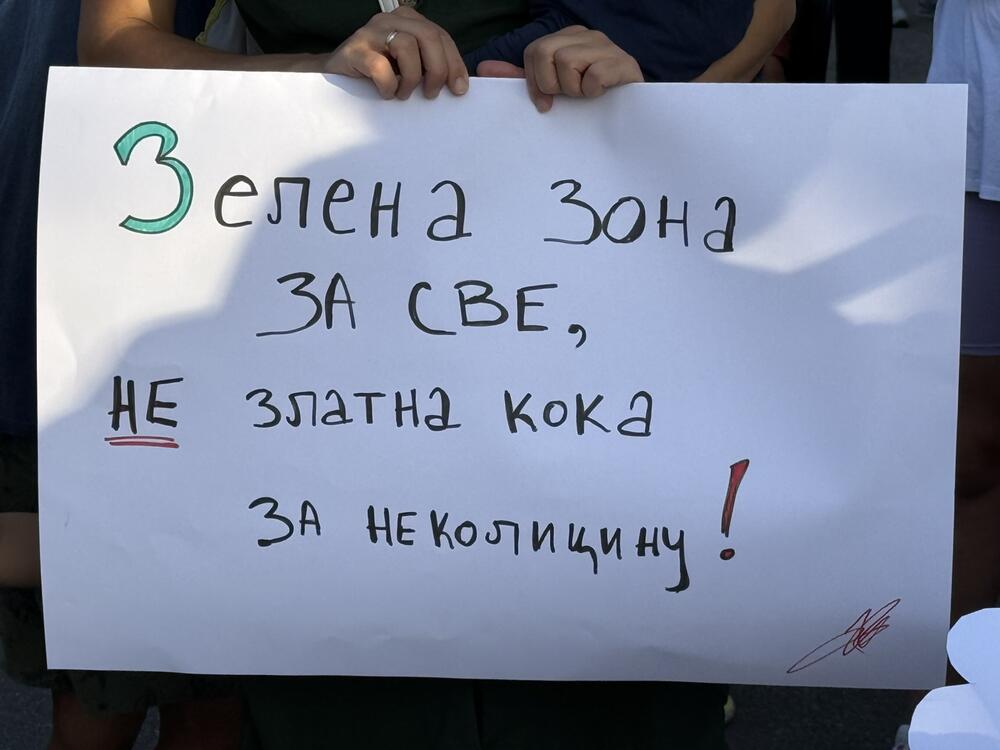 Зелена зона
ЗА СВЕ,
НЕ златна кока
ЗА НЕКОЛИЦИНУ!